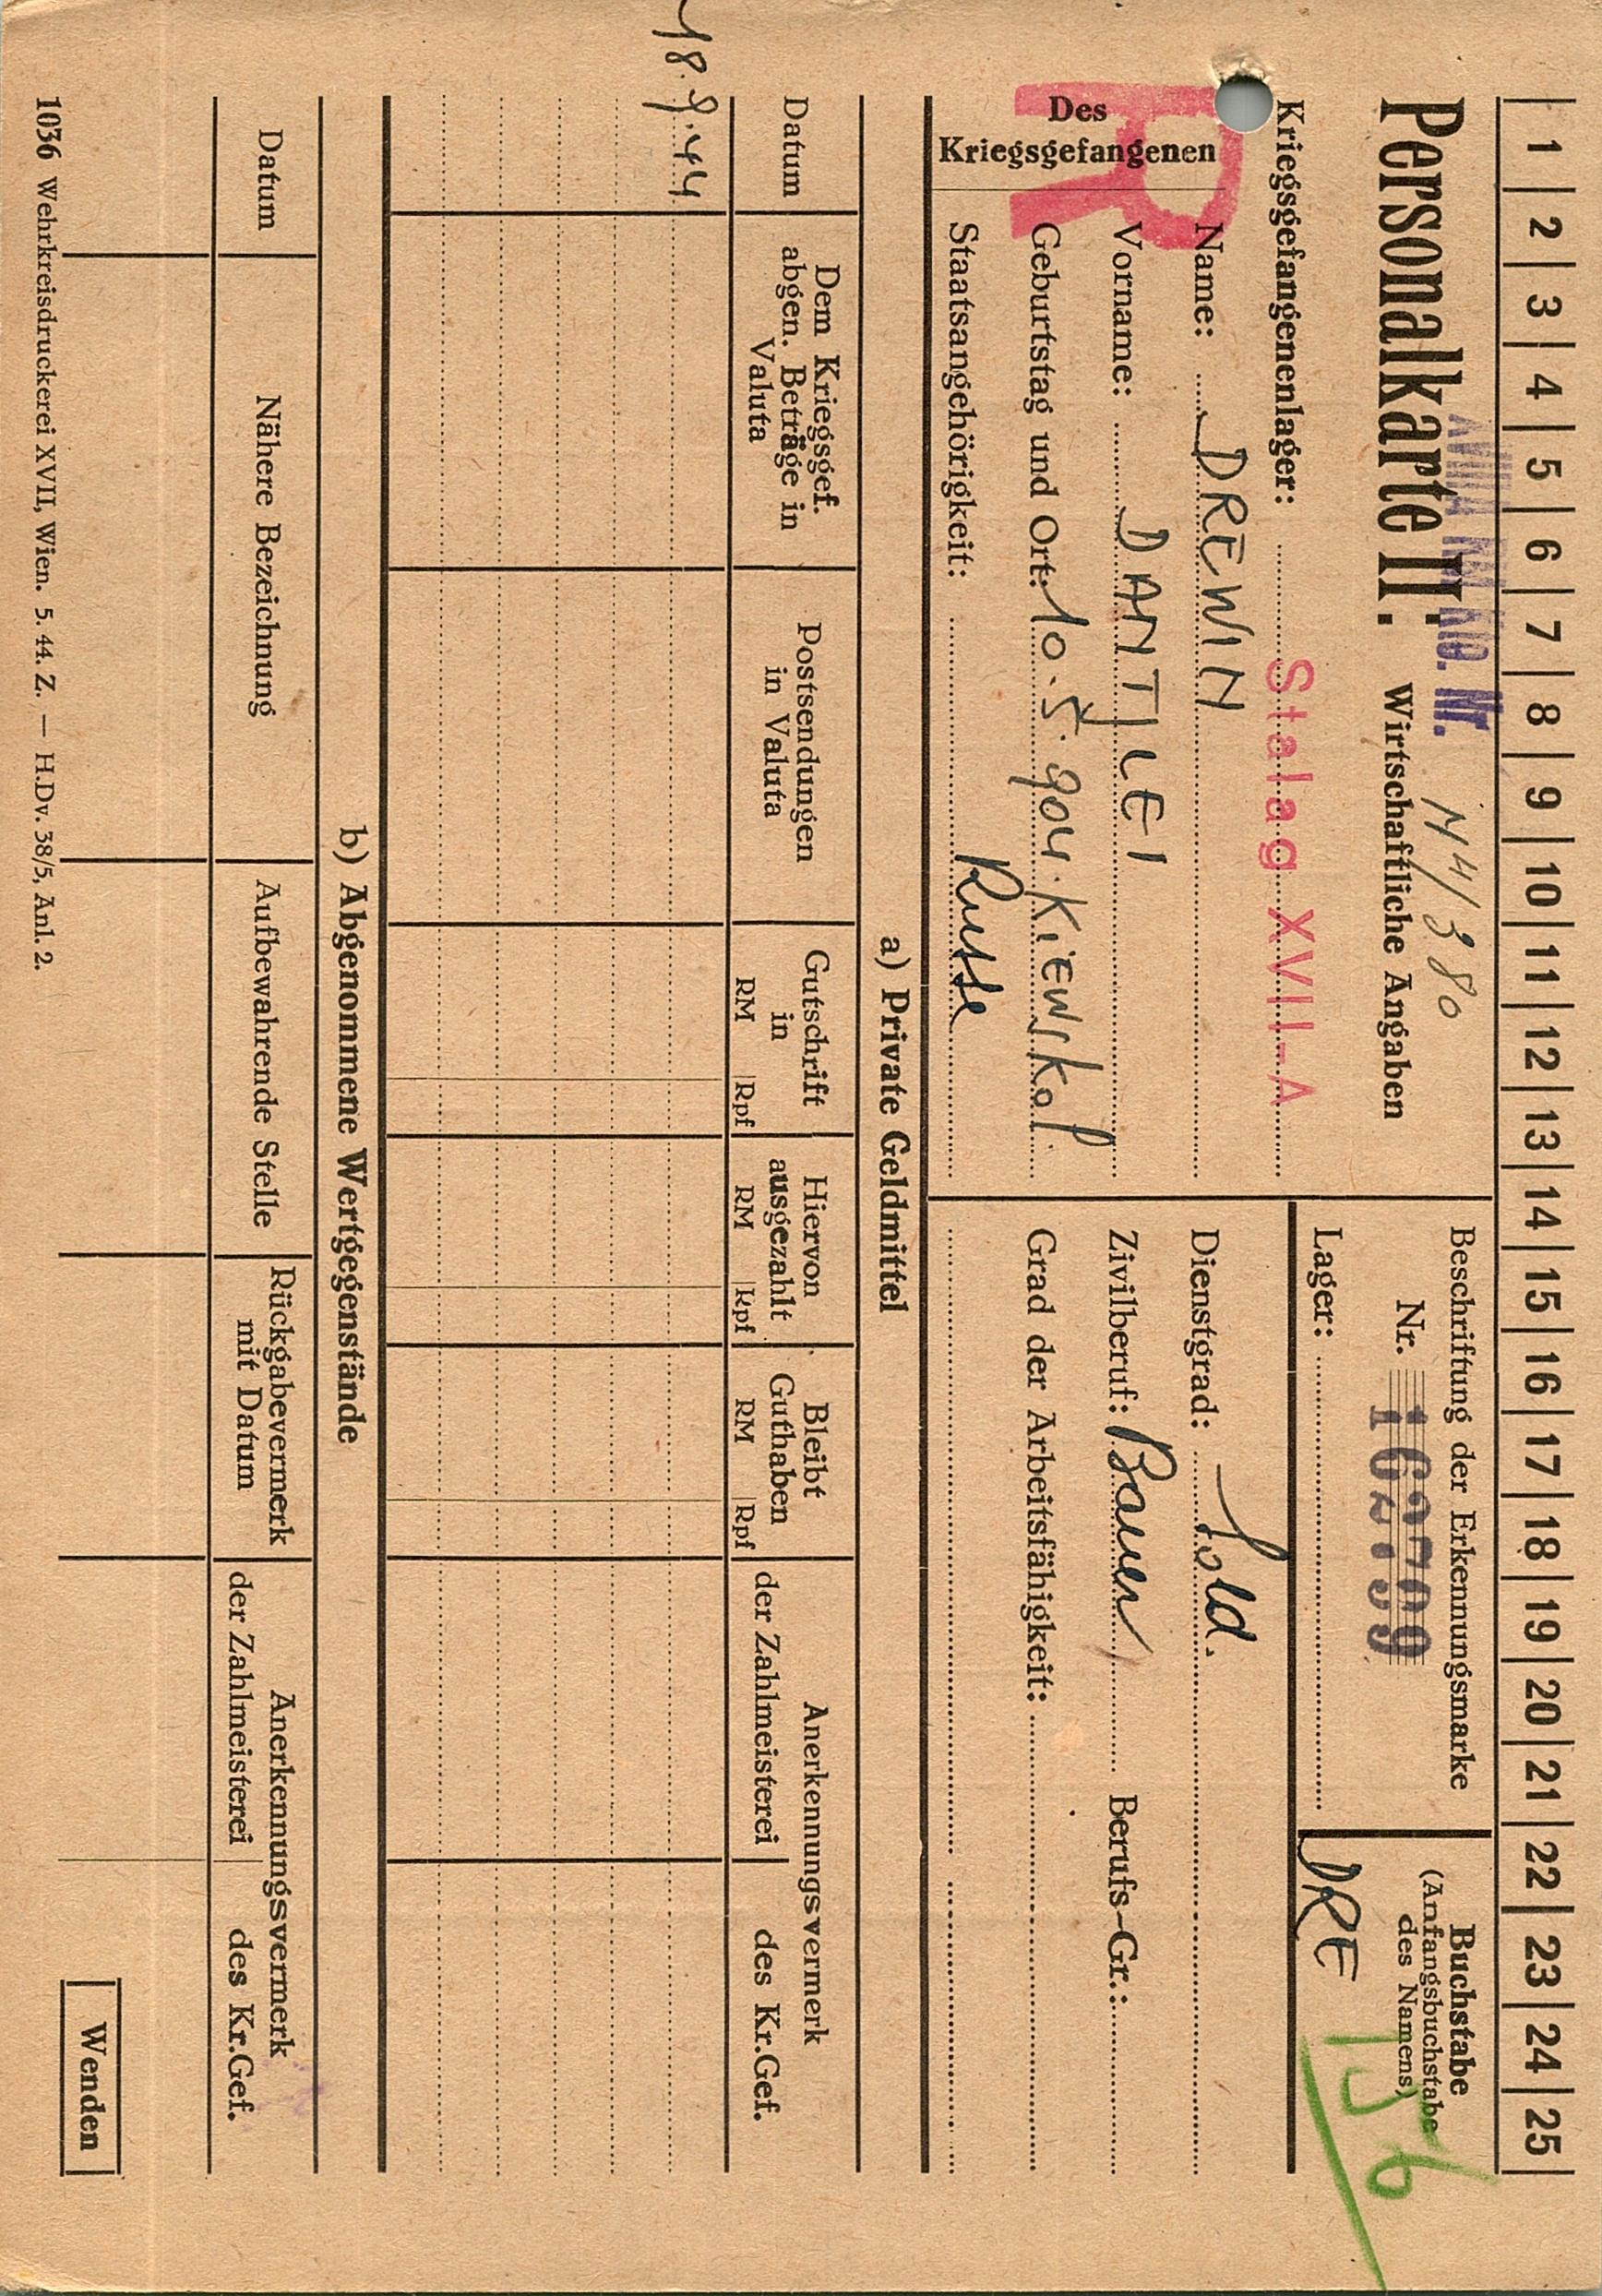 1 2 3 4 5 6 7 8 9 10 11 12 13 14 15 16 17 18 19 20 21 22 23 24 25
Nr. N4/380
Personalkarte II: Wirtschaftliche Angaben
Kriegsgefangenenlager: Stalag XVII-A
Beschriftung der Erkennungsmarke
Nr. 162799
Lager:
Buchstabe
(Anfangsbuchstabe
des Namens)
DRE
156
R
Des
Kriegsgefangenen
Name: DREWIN
Vorname: DANTILEI
Geburtstag und Ort: 10.5.904. Kiewskol
Staatsangehörigkeit: Russe
Dienstgrad: Sold.
Zivilberuf: Bauer Berufs-Gr.:
Grad der Arbeitsfähigkeit:
a) Private Geldmittel
Datum
Dem Kriegsgef.
abgen. Beträge in
Valuta
Postsendungen
in Valuta
Gutschrift
in
RM Rpf
Hiervon
ausgezahlt
RM Rpf
Bleibt
Guthaben
RM Rpf
Anerkennungsvermerk
der Zahlmeisterei des Kr.Gef.
18.9.44
b) Abgenommene Wertgegenstände
Datum
Nähere Bezeichnung
Aufbewahrende Stelle
Rückgabevermerk
mit Datum
Anerkennungsvermerk
der Zahlmeisterei des Kr.Gef.
Wenden
1036 Wehrkreisdruckerei XVII, Wien. 5. 44. Z. — H.Dv. 38/5, Anl. 2.